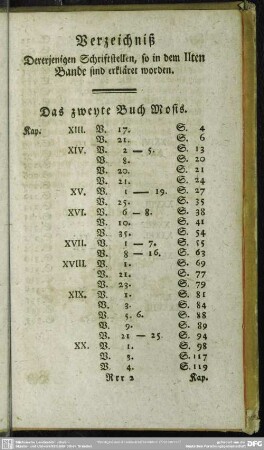 Verzeichniß
Dererjenigen Schriftstellen, so in dem IIten
Bande sind erkläret worden.
Das zweyte Buch Mosis.
Kap. XIII. V. 17. S. 4
V. 21. S. 6
XIV. V. 2 — 5. S. 13
V. 8. S. 20
V. 20. S. 21
V. 21. S. 24
XV. V. 1 — 19. S. 27
V. 25. S. 35
XVI. V. 6 — 8. S. 38
V. 10. S. 41
V. 35. S. 54
XVII. V. 1 — 7. S. 55
V. 8 — 16. S. 63
XVIII. V. 1. S. 69
V. 21. S. 77
V. 23. S. 79
XIX. V. 1. S. 81
V. 3. S. 84
V. 5. 6. S. 88
V. 9. S. 89
V. 21 — 25. S. 94
XX. V. 1. S. 98
V. 3. S. 117
V. 4. S. 119
Rrr 2 Kap.